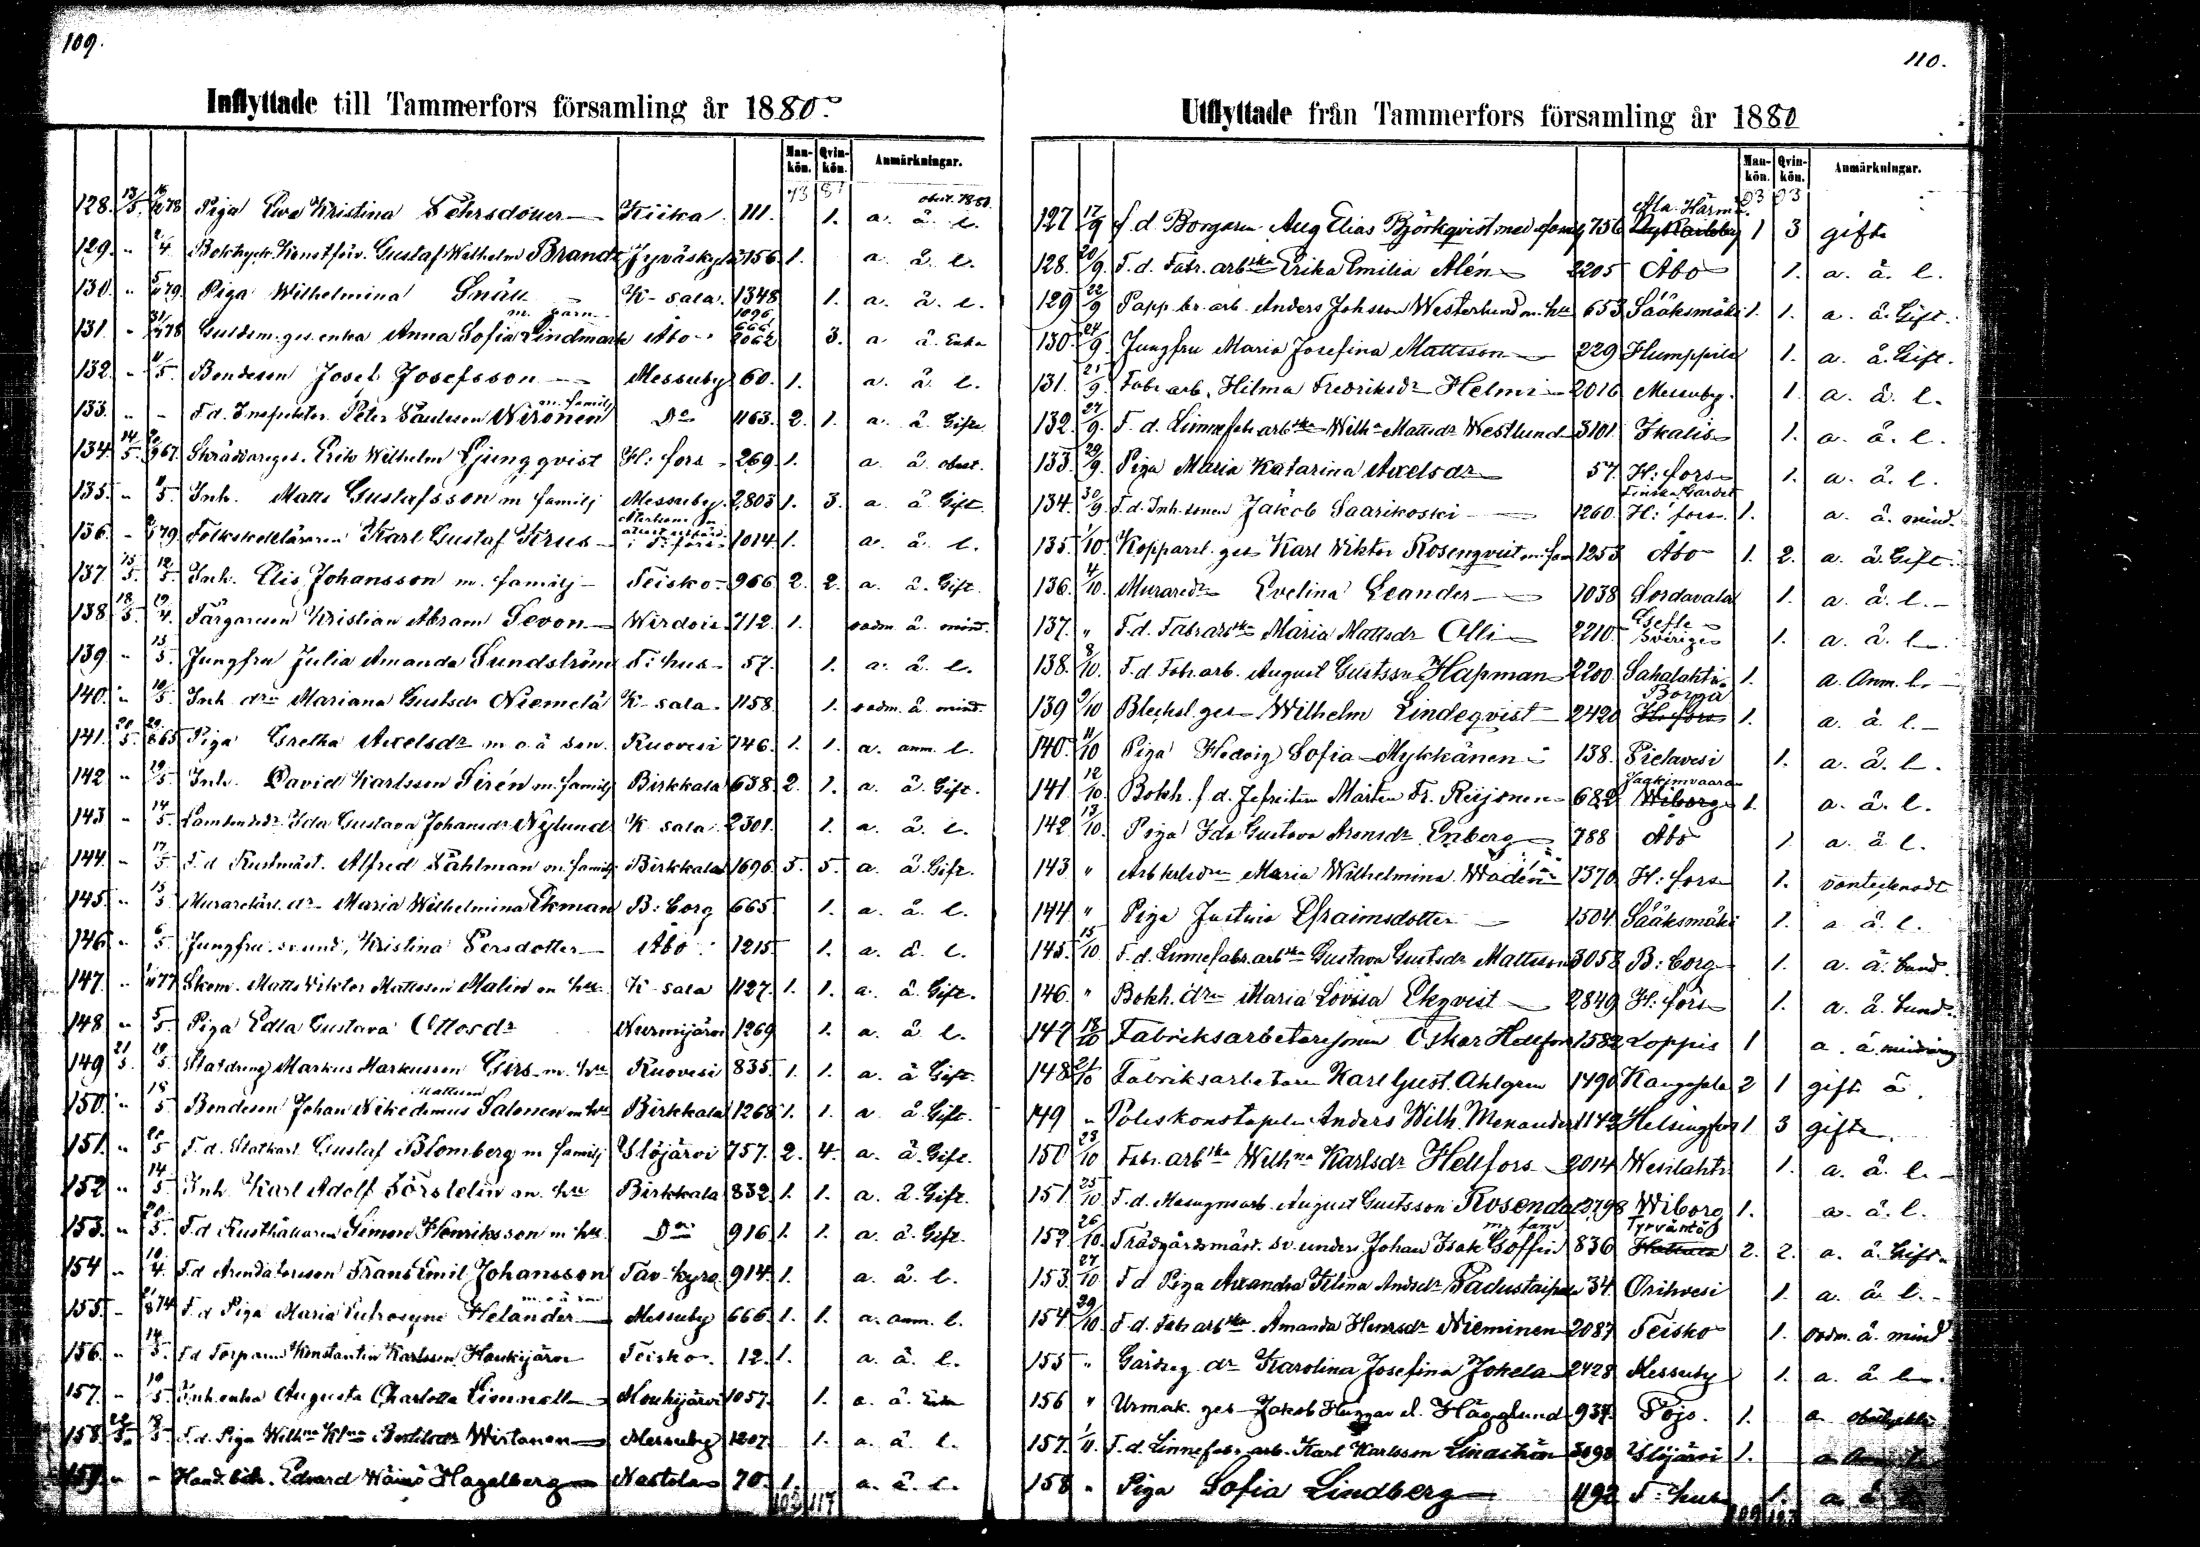 109.
Inflyttade till Tammerfors församling år 1880.
Man-kön. Qvin-kön. Anmärkningar.
73 87
128. 13/5 78 Piga Eva Kristina Pehrsdotter Kiika 111. 1. a. å. l.
129. " 4 Gustaf Wilhelm Brandt Jyväskylä 156. 1. a. å. l.
130. " 5/79 Piga Wilhelmina Snäll K-sala. 1348 1. a. å. l.
131. " 31/78 Guldsm. ges. enka Anna Sofia Lindmark m. barn Åbo 1096 666 2062 3. a å. Enka
132. " 11/5. Bondeson Josef Josefsson Messuby 60. 1. a. å. l.
133. " - F.d. Inspektor Peter Paulsson Wironen m. familj Do 1163. 2. 1. a. å Gift.
134. 14/5. 67. Skräddareges. Erik Wilhelm Ljungqvist H:fors 269. 1. a å. obest.
135. " 11/5. Inh. Matts Gustafsson m familj Messuby. 2803 1. 3. a. å Gift
136. " 79 Folkskoleläraren Karl Gustaf Krus i T:fors 1014. 1. a. å. l.
137 15/5. 12/5. Inh. Elis Johansson m. familj Teisko 966 2. 2. a. å. Gift.
138. 18/5. 19/4. Färgareson Kristian Abram Sevon Wirdois 712. 1. oadm. å. mind.
139 " 13/5. Jungfru Julia Amanda Sundström T:hus 57. 1. a. å. l.
140. " 10/5. Inh. dr Mariana Gustsdr Niemelä K-sala. 1158. 1. oadm. å. mind.
141. 20/5. 65 Piga Gretha Axelsdr m. o. ä son. Ruovesi 146. 1. 1. a. anm. l.
142 " 19/5 Inh. David Karlsson Sirén m. familj Birkkala 638. 2. 1. a. å. Gift.
143 " 14/5. Ida Gustava Johansdr Nylund K-sala. 2301. 1. a. å. l.
144. " 17/5 F.d Rustmäst. Alfred Påhlman m. familj Birkkala 1696. 5. 5. a. å. Gift.
145. " 13/5. Murarelärl. dr Maria Wilhelmina Ekman B:borg 665 1. a. å. l.
146. " 6/5 Jungfru. sv. und. Kristina Persdotter Åbo 1215. 1. a. å. l.
147. " 77 Skom. Matts Viktor Mattsson Malin m hu K-sala 1127. 1. 1. a. å. Gift.
148 " 5/5. Piga Edla Gustava Ottosdr Nurmijärvi 1269 1. a. å l.
149 21/5. 19/5. Statdreng Markus Markusson Girs m. hu Ruovesi 835. 1. 1. a. å Gift.
150. " 18/5. Bondeson Johan Nikodemus Mattsson Salonen m hu Birkkala 1268 1. 1. a å. Gift.
151. " 20/5 F.d. Statkarl Gustaf Blomberg m familj Ylöjärvi 757. 2. 4. a. å. Gift.
152 " 14/5 Inh. Karl Adolf Törstelin m. hu Birkkala 832 1. 1. a. å. Gift.
153. " 20/5. F.d Rusthållaren Simon Henriksson m hu Do 916 1. 1. a. å. Gift.
154 " 10/4. F.d Arendatorsson Frans Emil Johansson Tav-kyro 914. 1. a. å. l.
155. " 74 F.d Piga Maria Eufrosyne Helander m. o. ä son Messuby 666. 1. 1. a. anm. l.
156. " 14/5. F.d Torparen Konstantin Karlsson Houkijärvi Teisko 12. 1. a. å. l.
157. " 10/5 Inh. enka Augusta Charlotta Limnell Mouhijärvi 1057. 1. a. å. Enka
158. 22/5. 18/5. F.d. Piga Wilhna Wirtanen Messuby 1207 1. a. å. l.
159. " " Edvard Wäinö Hagelberg Nastola 70. 1. a. å. l.
103 117
110.
Utflyttade från Tammerfors församling år 1880
Man-kön. Qvin-kön. Anmärkningar.
93 93
127 17/9 f.d Borgaren Aug Elias Björkqvist med familj 756 Ala-Härmä. 1 3 gifta
128. 20/9. F.d. Fabr. arbska Erika Emilia Alén 2205 Åbo 1. a. å. l.
129 22/9 Papp. br. arb. Anders Johsson Westerlund m. hu 653 Sääksmäki 1. 1. a. å. Gift.
130. 24/9. Jungfru Maria Josefina Mattsson 229 Humppila 1. a. å. Gift.
131. 25/9. Fabr. arb. Hilma Fredriksdr Helmi 2016 Messuby. 1 a. å. l.
132. 27/9. F.d. Linnefabr. arbska Wilha Mattsdr Westlund 3101 Ikalis 1. a. å. l.
133. 29/9. Piga Maria Katarina Axelsdr 57. H:fors 1. a. å. l.
134. 30/9 F.d. Inh. sonen Jakob Saarikoski 1260. Finska Gardet H:fors. 1. a. å. mind.
135. 1/10. Kopparsl. ges. Karl Wiktor Rosenqvist m. fam 1253 Åbo 1. 2. a. å. Gift.
136. 4/10. Muraredr Evelina Leander 1038 Sordavala 1. a. å. l.
137. " F.d. Fabr arbska Maria Mattsdr Olli 2210. Gefle Sverige 1. a. å. l.
138. 8/10. F.d. Fabr. arb. August Gustsson Hapman 2200. Sahalahti. 1. a. Anm. l.
139 9/10 Blecksl. ges Wilhelm Lindeqvist 2420 Borgå H:fors 1. a. å. l.
140. 11/10 Piga Hedvig Sofia Mykkänen 138. Pielavesi 1. a. å. l.
141. 12/10. Bokh. f.d. Jefreitern Mårten Fr. Reijonen 682 Jaakimvaara Wiborg 1. a. å. l.
142 13/10. Piga Ida Gustava Aronsdr Enberg 788 Åbo 1 a. å l.
143 " Arbkarlsdr Maria Wilhelmina Wadén 1370. H:fors 1. oantecknadt
144 " Piga Justina Efraimsdotter 1504. Sääksmäki 1. a å. l.
145. 15/10 F.d. Linnefabr. arbska Gustava Gustsdr Mattsson 3058 B:borg 1. a. å. bund.
146. " Bokh. dr Maria Lovisa Ekqvist 2849 H:fors 1. a. å. bund.
147 18/10 Fabriksarbetaresonen Oskar Hellfors 1582 Loppis 1 a. å mindrårig
148 21/10 Fabriksarbetaren Karl Gust. Ahlgren 1490 Kangasala 2 1 gift å
149 " Poliskonstapeln Anders Wilh. Menander 1142 Helsingfors 1 3 gifta
150 23/10 Fabr. arbska Wilhna Karlsdr Hellfors 2014 Wesilahti 1. a. å. l.
151. 25/10 F.d. Masugnsarb. August Gustsson Rosendal 2798 Wiborg 1. a. å. l.
152 26/10. Trädgårdsmäst. sv. unders. Johan Isak Goffin m. fam 836 Tyrväntö 2. 2. a. å. Gift.
153. 27/10 F.d Piga Alexandra Helena Andsdr Padustaipale 34. Orihvesi 1. a. å l.
154 29/10 F.d. Fabr arbska Amanda Henrsdr Nieminen 2087 Teisko 1. oadm. å. mind.
155 " Gårdseg. dr Karolina Josefina Jokela 2428 Messuby 1. a. å l.
156 " Urmak. ges Jakob Hägglund 937. Pojo. 1. a.
157. 1/11. F.d. Linnefabr. arb. Karl Karlsson Lindström 3098 Ylöjärvi 1.
158 " Piga Sofia Lindberg 492 T:hus 1. a å l.